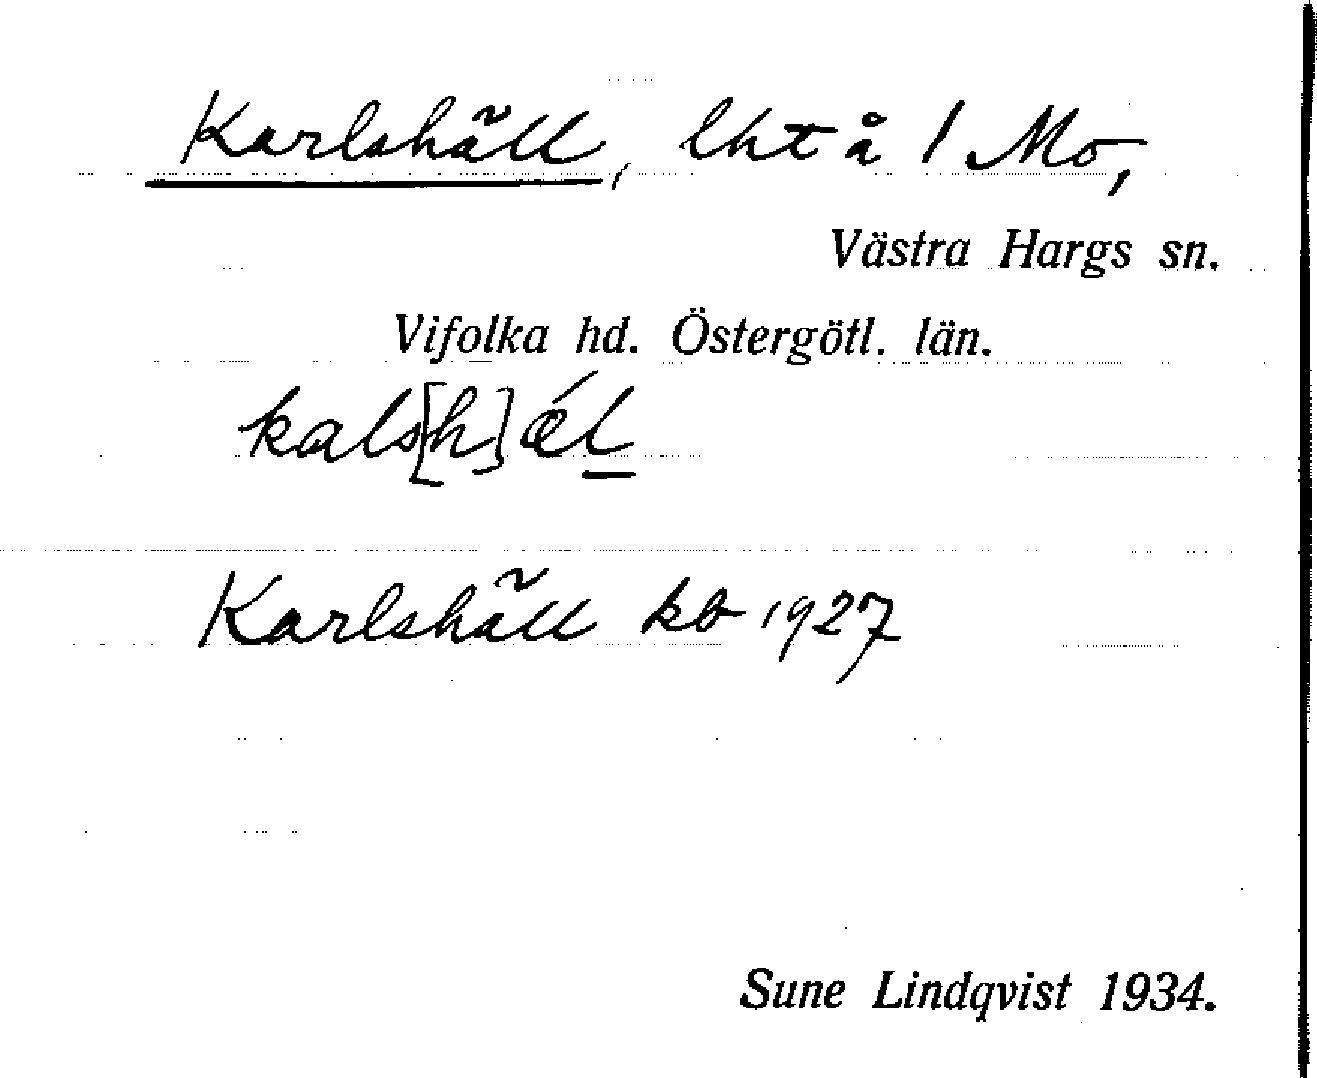 Karlshäll, lht å 1 Mo,
Västra Hargs sn.
Vifolka hd. Östergötl. län.
kals[h]ǽl
Karlshäll kb 1927
Sune Lindqvist 1934.